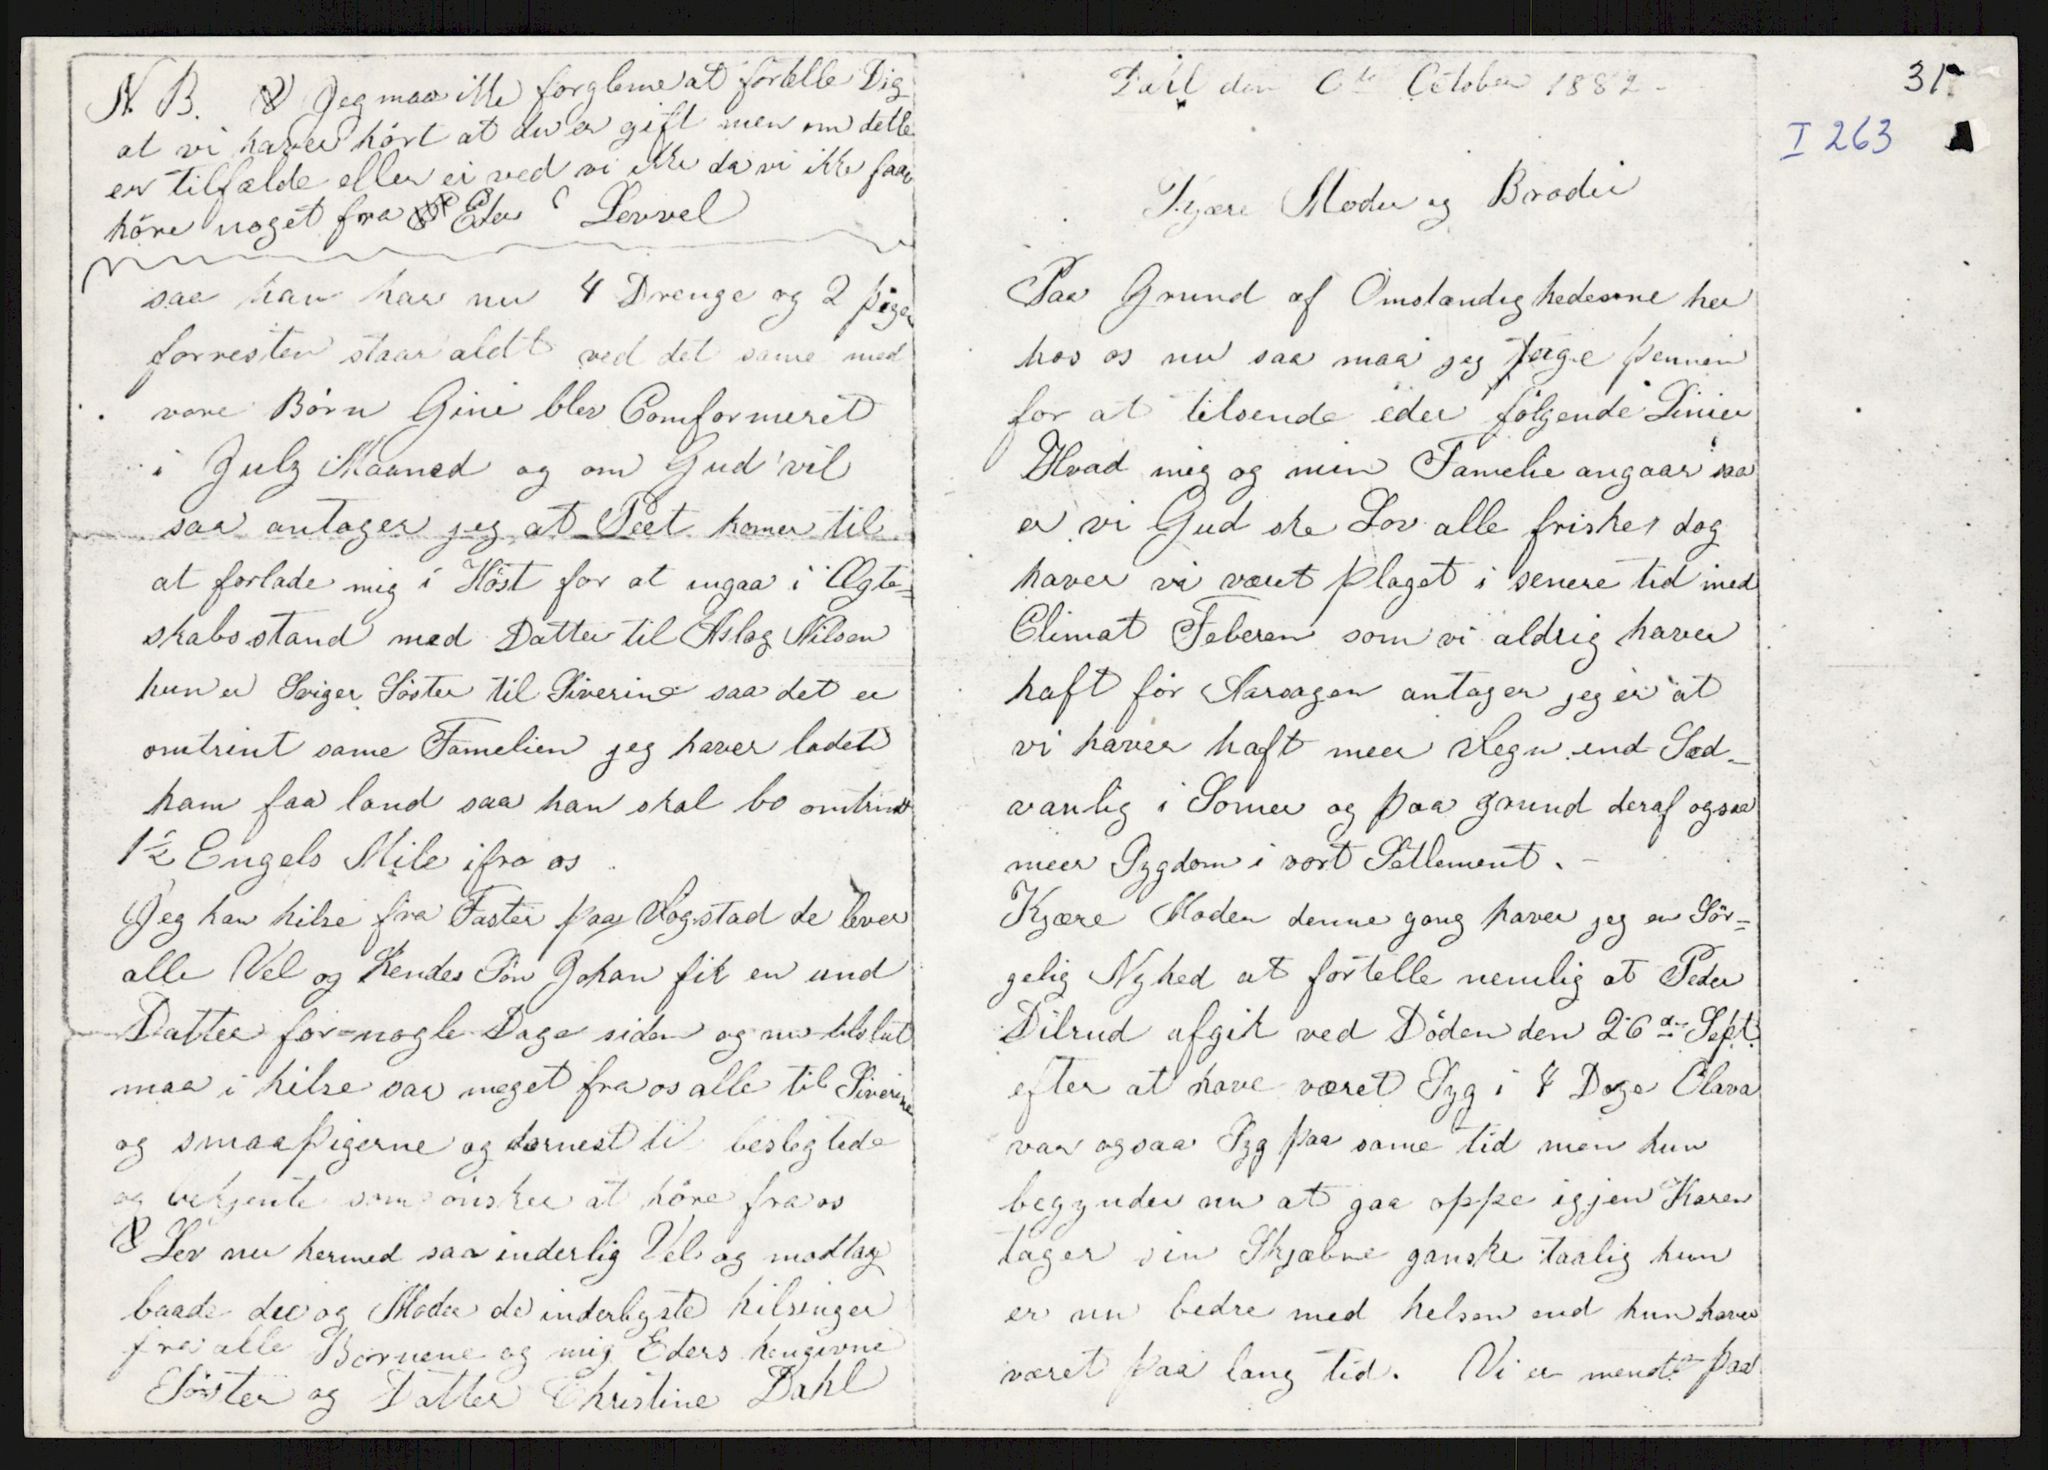 N. B. Jeg maa ikke forgleme at fortelle Dig
at vi haver hört at du er gift men om dette
er tilfælde eller ei ved vi ikke da vi ikke faar
höre noget fra Eder Levvel
saa han har nu 4 Drenge og 2 piger
forresten staar aldt ved det same med
vore Börn Gine blev Comformeret
i July Maaned og om Gud vil
saa antager jeg at Peet komer til
at forlade mig i Höst for at ingaa i Ægte=
skabsstand med Datter til Aslag Nilsen
hun er Sviger Söster til Siverine saa det er
omtrint same Famelien jeg haver ladet
ham faa land saa han skal bo omtrint
1½ Engels Mile ifra os
Jeg kan hilse fra Faster paa Rogstad de lever
alle Vel og Hendes Sön Johan fik en und
Datter for nogle Dage siden og nu tilslut
maa i hilse saa meget fra os alle til Siverine
og smaapigerne og dernest til beslegtede
og bekjente som önsker at höre fra os
Lev nu hermed saa inderlig Vel og modtag
baade du og Moder de inderligste hilsinger
fra alle Börnene og mig Eders hengivne
Söster og Datter Christine Dahl
31
I 263
den 6te October 1882
Kjære Moder og Broder
Paa Grund af Omstændighederne her
hos os nu saa maa jeg tage pennen
for at tilsende eder fölgende Linier
Hvad mig og min Famelie angaar saa
er vi Gud ske Lov alle friske, dog
haver vi været plaget i senere tid med
Climat Feberen som vi aldrig haver
haft för Aarsagen antager jeg er at
vi haver haft meer Regn end Sæd=
vanlig i Somer og paa grund deraf ogsaa
meer Sygdom i vort Setlement. –
Kjære Moder denne gang haver jeg en Sör=
gelig Nyhed at fortelle nemlig at Peder
Dilrud afgik ved Döden den 26de Sept.
efter at have været Syg i 4 Dage Olava
var ogsaa Syg paa same tid men hun
begynder nu at gaa oppe igjen Karen
tager sin Skjæbne ganske taalig hun
er nu bedre med helsen end hun haver
været paa lang tid. Vi er paa